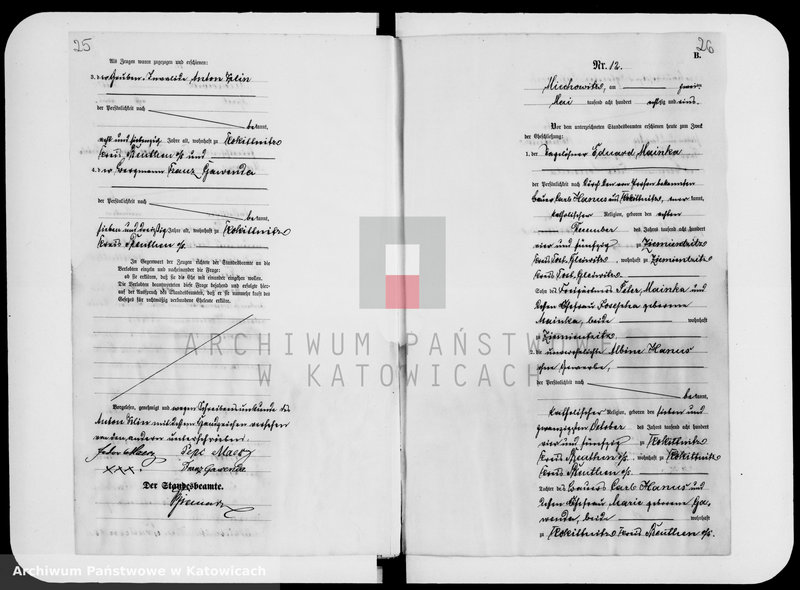 25
Als Zeugen waren zugezogen und erschienen:
3. der Gruben-Invalide Anton Klin
der Persönlichkeit nach
bekannt,
acht und siebenzig Jahre alt, wohnhaft zu Rokittnitz
Kreis Beuthen o/s und
4. der Bergmann Franz Gawenda
der Persönlichkeit nach
bekannt,
sieben und dreißig Jahre alt, wohnhaft zu Rokittnitz
Kreis Beuthen o/s.
In Gegenwart der Zeugen richtete der Standesbeamte an die
Verlobten einzeln und nacheinander die Frage:
ob sie erklären, daß sie die Ehe mit einander eingehen wollen.
Die Verlobten beantworteten diese Frage bejahend und erfolgte hier-
auf der Ausspruch des Standesbeamten, daß er sie nunmehr kraft des
Gesetzes für rechtmäßig verbundene Eheleute erkläre.
Vorgelesen, genehmigt und wegen Schreibensunkunde des
Anton Klin mit dessen Handzeichen versehen
von den anderen unterschrieben
XXX. Franz Gawenda
Der Standesbeamte.
26
B.
Nr. 12.
Miechowitz, am zwei
Mai tausend acht hundert achtzig und eins.
Vor dem unterzeichneten Standesbeamten erschienen heute zum Zweck
der Eheschließung:
1. der Eduard Mainka
der Persönlichkeit nach durch den von Person bekannten
Bauer Carl Hanus aus Rokittnitz, aner kannt,
katholischer Religion, geboren den achten
Dezember des Jahres tausend acht hundert
vier und fünfzig zu Ziemientzitz
Kreis Tost-Gleiwitz, wohnhaft zu Ziemientzitz
Kreis Tost-Gleiwitz
Sohn des Peter Mainka und
dessen Ehefrau Josepha geborene
Mainka, beide wohnhaft
zu Ziemientzitz
2. die unverehelichte Albine Hanus
ohne Gewerbe,
der Persönlichkeit nach
bekannt,
katholischer Religion, geboren den sieben und
zwanzigsten October des Jahres tausend acht hundert
vier und fünfzig zu Rokittnitz
Kreis Beuthen o/s, wohnhaft zu Rokittnitz
Kreis Beuthen o/s.
Tochter des Bauers Carl Hanus und
dessen Ehefrau Marie geborene Ga-
wenda, beide wohnhaft
zu Rokittnitz Kreis Beuthen o/s.
ARCHIWUM PAŃSTWOWE
W KATOWICACH
Archiwum Państwowe w Katowicach